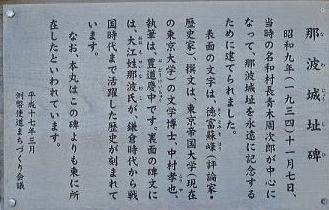 那波城址碑
昭和九年(一九三四)十一月七日、
当時の名和村長青木周次郎が中心に
なって、那波城址を永遠に記念する
ために建てられました。
表面の文字は、徳富蘇峰(評論家・
歴史家)撰文は、東京帝国大学(現在
の東京大学)の文学博士、中村孝也、
執筆は、豊道慶中です。裏面の碑文に
は、大江姓那波氏が、鎌倉時代から戦
国時代まで活躍した歴史が刻まれて
います。
なお、本丸はこの碑よりも東に所
在したといわれています。
平成十七年三月
例幣使道まちづくり会議